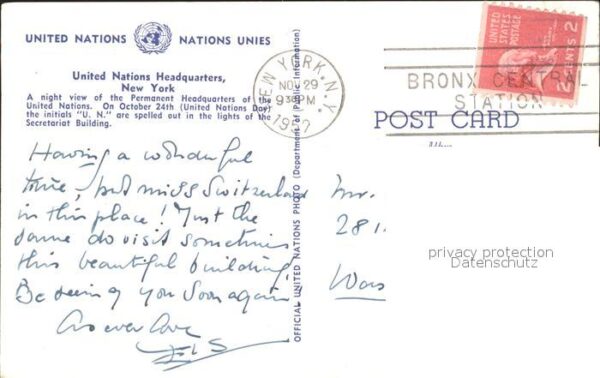 UNITED NATIONS NATIONS UNIES
United Nations Headquarters,
New York
A night view of the Permanent Headquarters of the
United Nations. On October 24th (United Nations Day)
the initials "U. N." are spelled out in the lights of the
Secretariat Building.
Having a wonderful
time, but miss Switzerland
in this place! Just the
same do visit sometime
this beautiful building.
Be seeing you soon again
As ever Love
OFFICIAL UNITED NATIONS PHOTO (Department of Public Information)
NEW YORK, N.Y.
NOV 29
9 30 PM
BRONX CENTRAL
STATION
UNITED
STATES
POSTAGE
2 CENTS 2
POST CARD
Mr.
281
privacy protection
Datenschutz